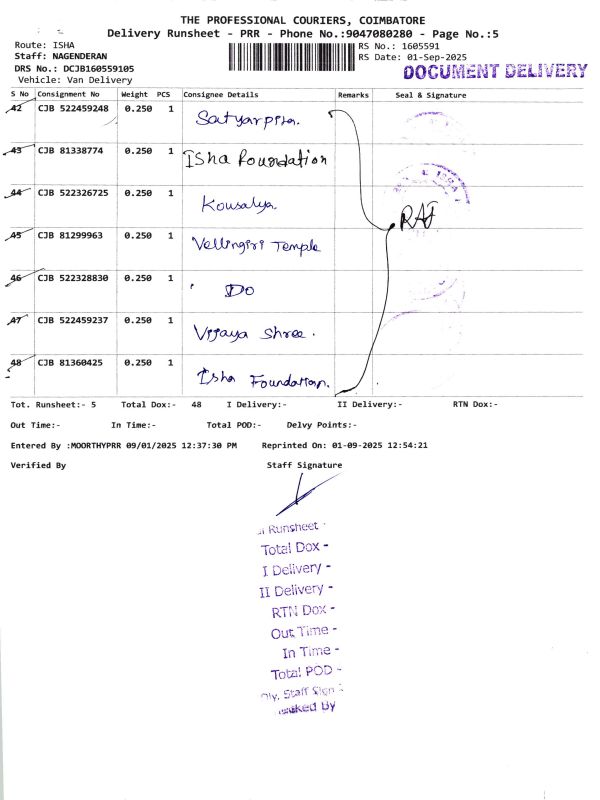 THE PROFESSIONAL COURIERS, COIMBATORE
Delivery Runsheet - PRR - Phone No.:9047080280 - Page No.:5
Route: ISHA
RS No.: 1605591
Staff: NAGENDERAN
RS Date: 01-Sep-2025
DRS No.: DCJB160559105
DOCUMENT DELIVERY
Vehicle: Van Delivery
S No Consignment No Weight PCS Consignee Details Remarks Seal & Signature
42 CJB 522459248 0.250 1 Satyarpita.
43 CJB 81338774 0.250 1 Isha Foundation
44 CJB 522326725 0.250 1 Kousalya.
45 CJB 81299963 0.250 1 Vellingiri Temple
RAJ
46 CJB 522328830 0.250 1 Do
47 CJB 522459237 0.250 1 Vijaya Shree.
48 CJB 81360425 0.250 1 Isha Foundation.
Tot. Runsheet:- 5 Total Dox:- 48 I Delivery:- II Delivery:- RTN Dox:-
Out Time:- In Time:- Total POD:- Delvy Points:-
Entered By :MOORTHYPRR 09/01/2025 12:37:30 PM Reprinted On: 01-09-2025 12:54:21
Verified By Staff Signature
Runsheet -
Total Dox -
I Delivery -
II Delivery -
RTN Dox -
Out Time -
In Time -
Total POD -
Staff Sign -
By